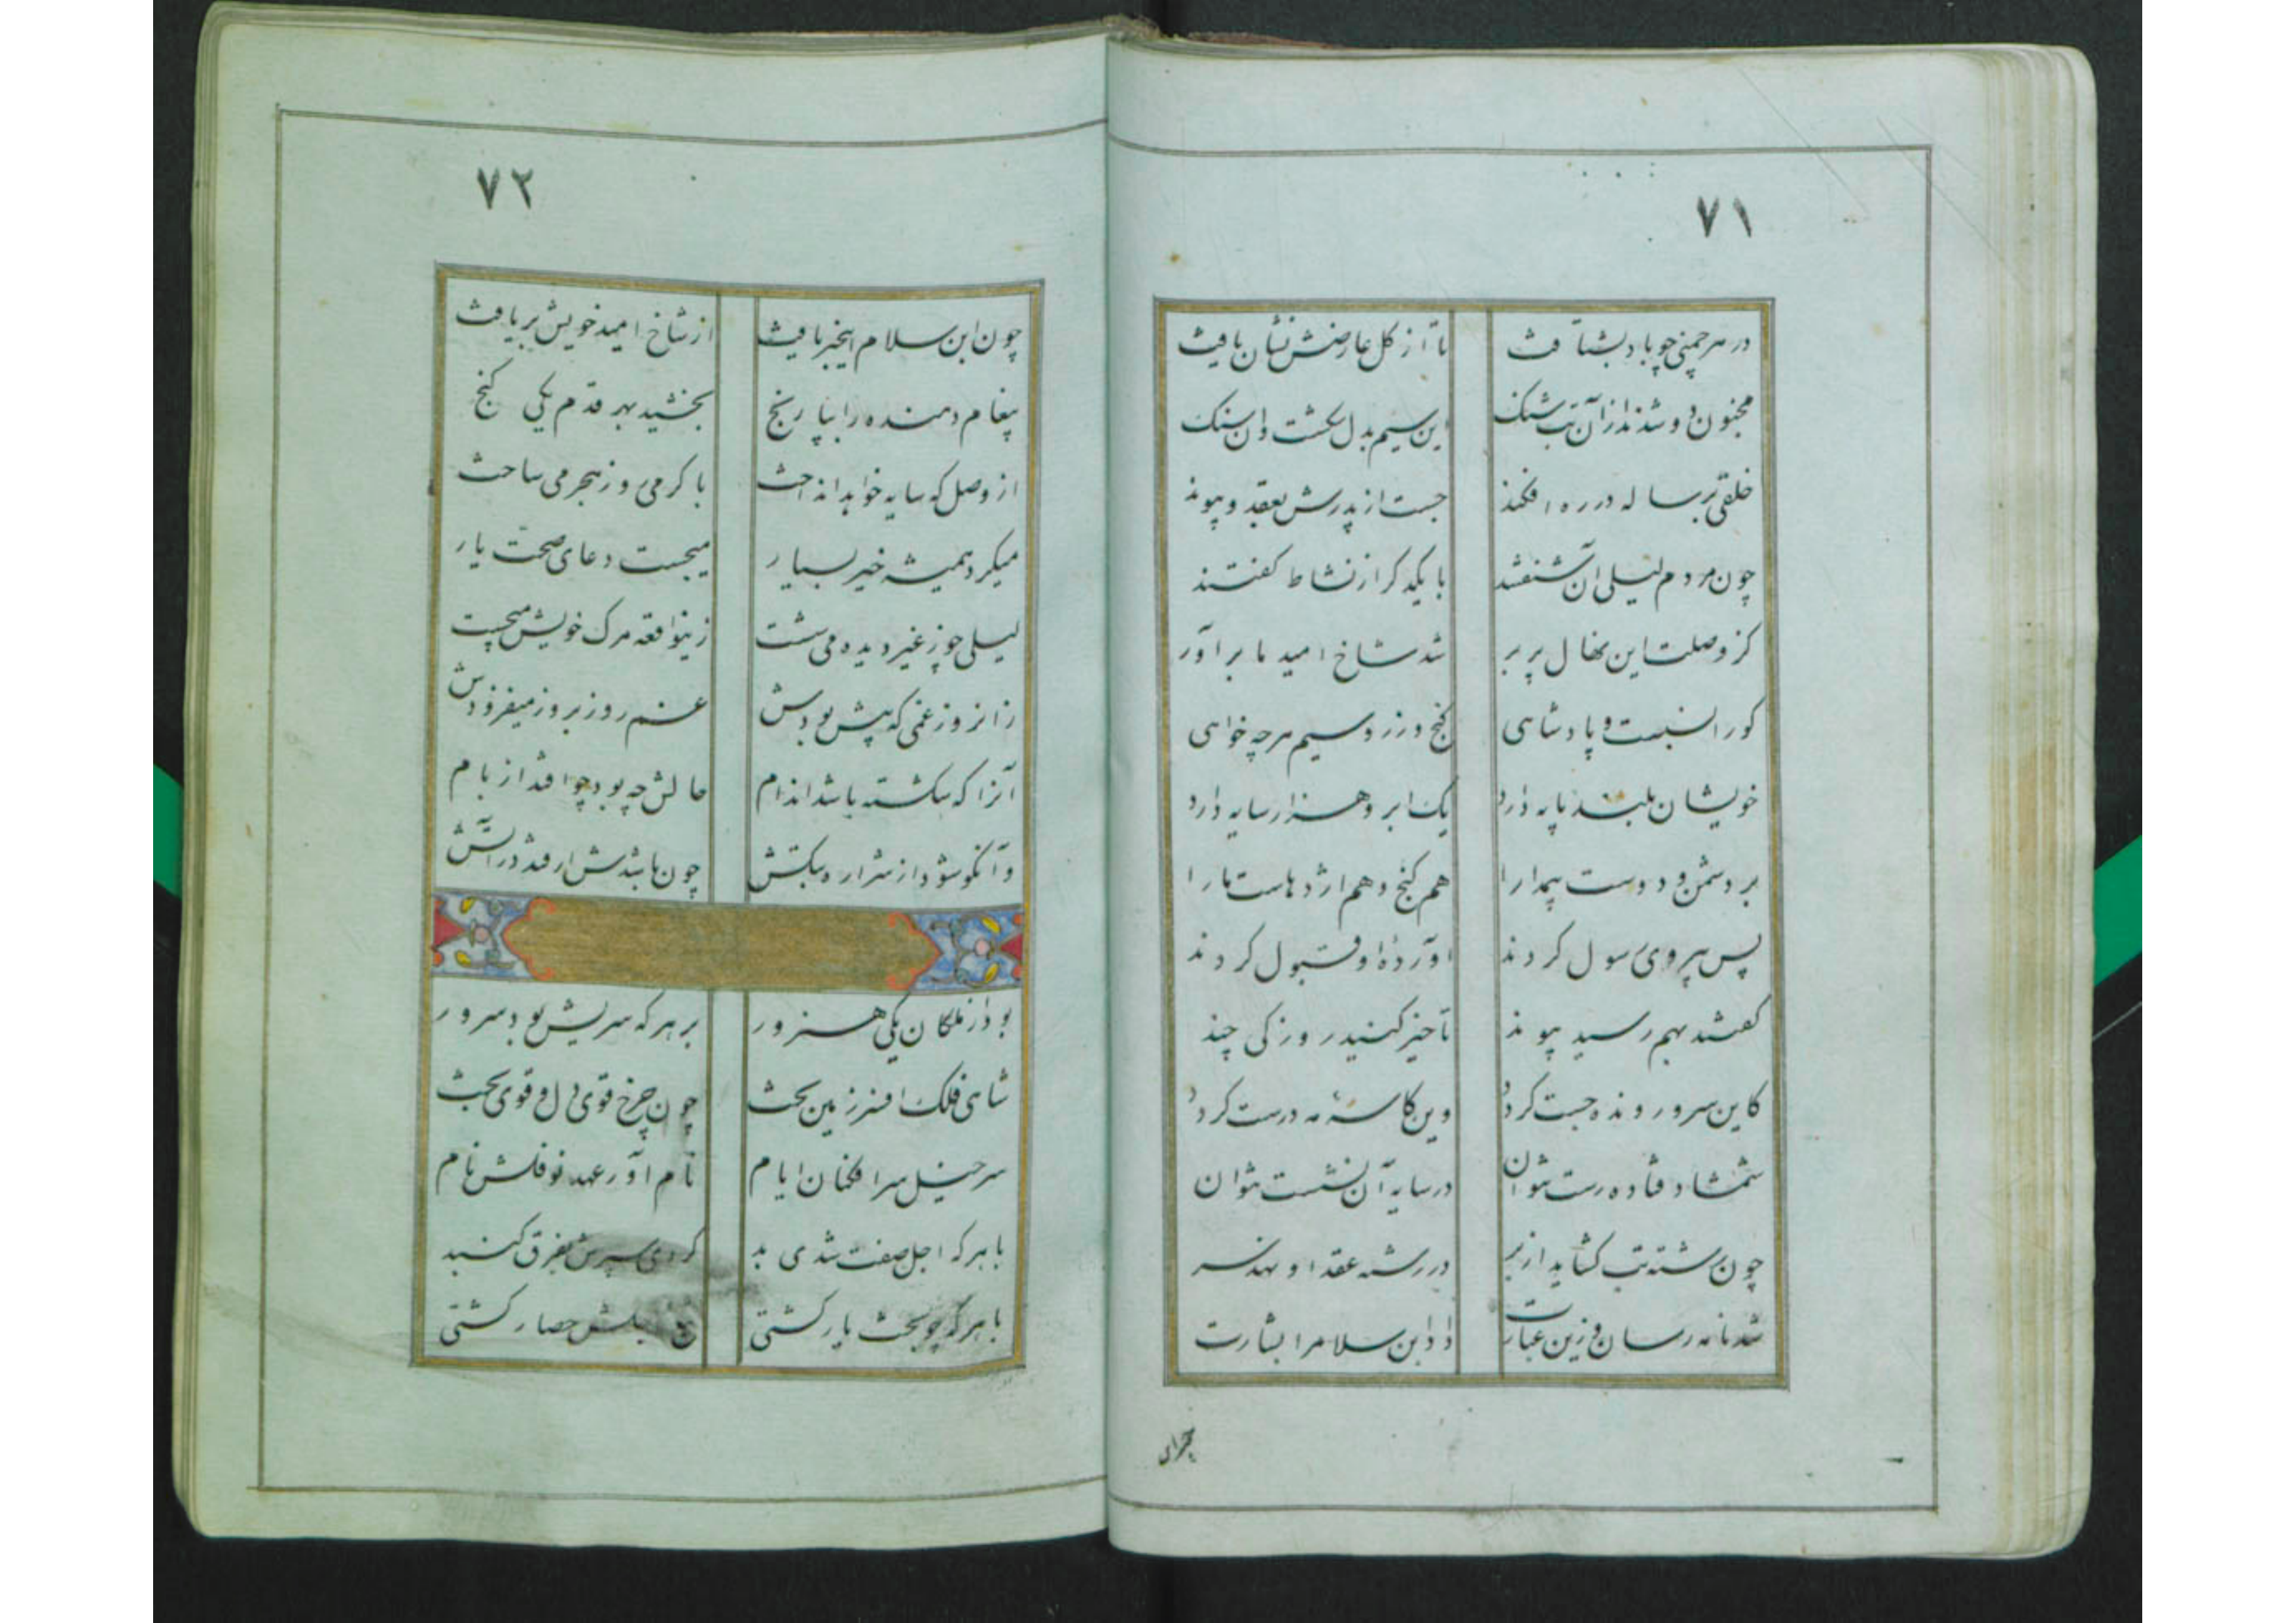 ۷۱
در هر چمنی چو باد بشتافت تا از گل عارضش نشان یافت
مجنون و شدند از آن تب تنک این سیم بدل کشت وان سنک
خلقی برساله در ره افکند جست از پدرش بعقد و پیوند
چون مردم لیلی آن شنفتند با یکدکر از نشاط کفتند
کز وصلت این نهال پر بر شد شاخ امید ما براور
کورا نسبت و پادشاهی کنج و زر و سیم هرچه خواهی
خویشان بلند پایه دارد یک ابر و هزار سایه دارد
بر دشمن و دوست بیمدارا هم کنج و هم اژدهاست مارا
پس پیروی سول کردند آورده او قبول کردند
کفتند بهم رسید پیوند تاخیر کنید روزکی چند
کاین سرو رونده جست کردد وین کاسهٔ مه درست کردد
شمشاد فتاده رست بتوان در سایه آن نشست بتوان
چون رشته تب کشاید از بر در رشته عقد او نهد سر
شد نامه رسان و زین عبارت داد ابن سلام را بشارت
۷۲
چون ابن سلام اینخبر یافت از شاخ امید خویش بر یافت
پیغام دهنده را بپا رنج بخشید بهر قدم یکی کنج
از وصل که سایه خواهد انداخت با کرمی روز هجر می ساخت
میکرد همیشه خیر بسیار میجست دعای صحت یار
لیلی چو ز غیر دیده می شست زینواقعه مرک خویش میجست
زانروز غمی که پیش بودش غم روز بروز میفزودش
آنرا که شکسته باشد اندام حالش چه بود چو افتد از بام
وآنکو شود از شراره بیکش چون باشدش ار فتد در آتش
بود از ملکان یکی هنرور بر هر که سریش بود سرور
شاهی فلک افسر زمین تخت چون چرخ قوی دل و قوی بخت
سرخیل سرافکنان ایام نام آور عهد نوفلش نام
با هر که اجل صفت شدی بد کردی سپرش بفرق کنبد
با هر که چو بخت یار کشتی حصار کشتی